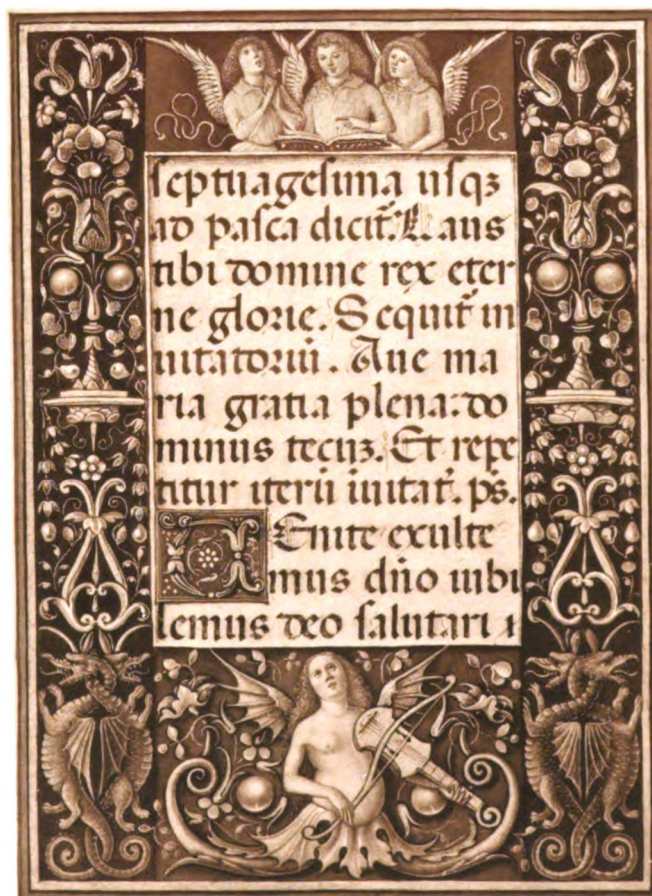 septuagesima usqꝫ
ad pasca dicit̃. Laus
tibi domine rex eter
ne glorie. Sequit̃ in
uitatoriũ. Aue ma
ria gratia plena: do
minus tecuꝫ. Et repe
titur iterũ ĩuitat̃. ps̃.
Venite exulte
mus dño iubi
lemus deo salutari ı